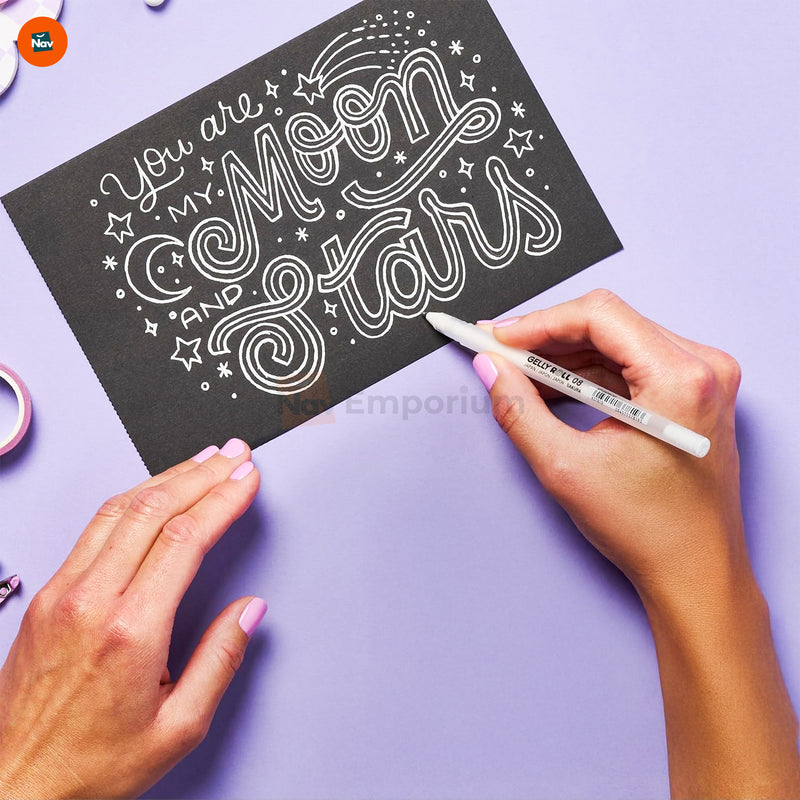 Nav
You are
MY Moon
AND Stars
GELLY ROLL 08
JAPAN JAPON JAPÓN SAKURA
Nav Emporium